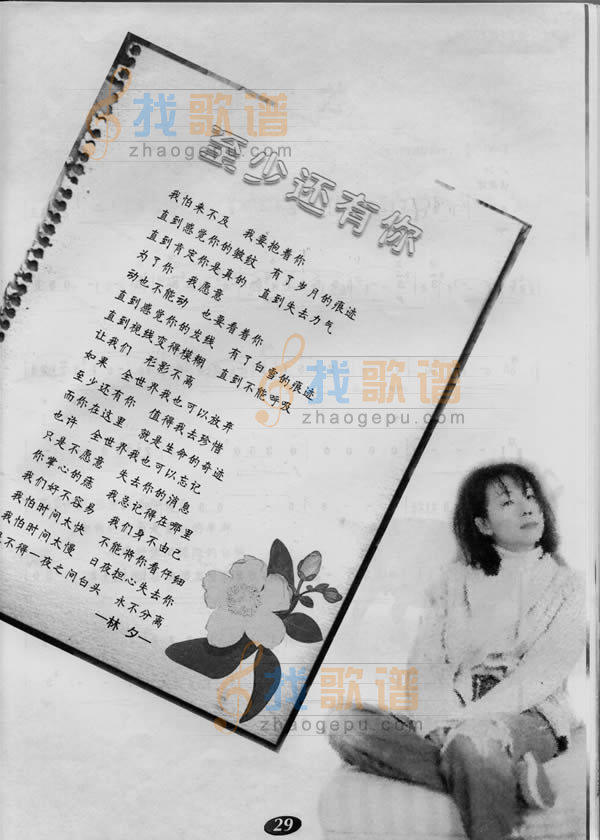 找歌谱
zhaogepu.com
至少还有你
我怕来不及 我要抱着你
直到感觉你的皱纹 有了岁月的痕迹
直到肯定你是真的 直到失去力气
为了你 我愿意
动也不能动 也要看着你
直到感觉你的发线 有了白雪的痕迹
直到视线变得模糊 直到不能呼吸
让我们 形影不离
如果 全世界我也可以放弃
至少还有你 值得我去珍惜
而你在这里 就是生命的奇迹
也许 全世界我也可以忘记
只是不愿意 失去你的消息
你掌心的痣 我总记得在哪里
我们好不容易 我们身不由己
我怕时间太快 不能将你看仔细
我怕时间太慢 日夜担心失去你
不得一夜之间白头 永不分离
—林 夕—
找歌谱
zhaogepu.com
找歌谱
zhaogepu.com
29